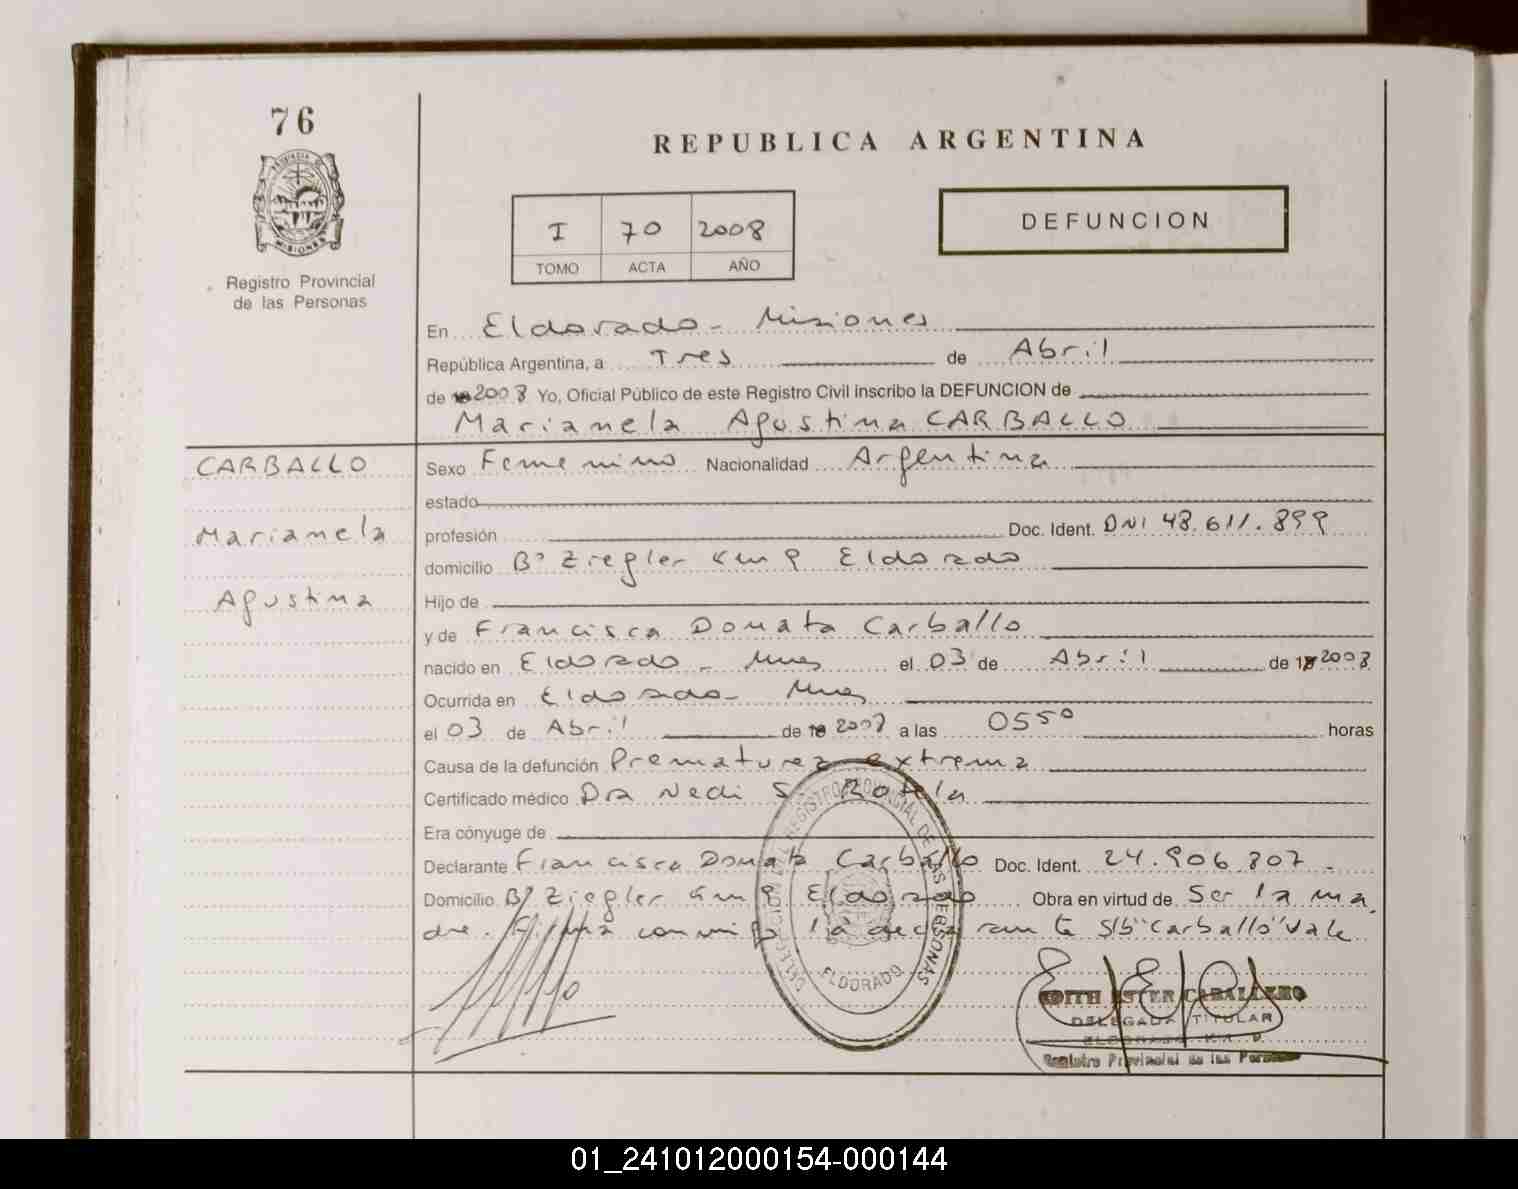 76
REPUBLICA ARGENTINA
PROVINCIA DE
MISIONES
Registro Provincial
de las Personas
I 70 2008
TOMO ACTA AÑO
DEFUNCION
En Eldorado - Misiones
República Argentina, a Tres de Abril
de 2008 Yo, Oficial Público de este Registro Civil inscribo la DEFUNCION de
Marianela Agustina CARBALLO
CARBALLO
Marianela
Agustina
Sexo Femenino Nacionalidad Argentina
estado
profesión Doc. Ident. DNI 48.611.899
domicilio Bº Ziegler Km 9 Eldorado
Hijo de
y de Francisca Donata Carballo
nacido en Eldorado - Mnes el 03 de Abril de 2008
Ocurrida en Eldorado - Mnes
el 03 de Abril de 2008 a las 0550 horas
Causa de la defunción Prematurez extrema
Certificado médico Dra Nedi S. Rotela
Era cónyuge de
Declarante Francisca Donata Carballo Doc. Ident. 24.906.807.
Domicilio Bº Ziegler Km 9 Eldorado Obra en virtud de Ser la ma
dre. Firma conmigo la declarante S/b "Carballo" Vale
REGISTRO PROVINCIAL DE LAS PERSONAS
ELDORADO
EDITH ESTER CABALLERO
DELEGADA TITULAR
Registro Provincial de las Personas
01_241012000154-000144